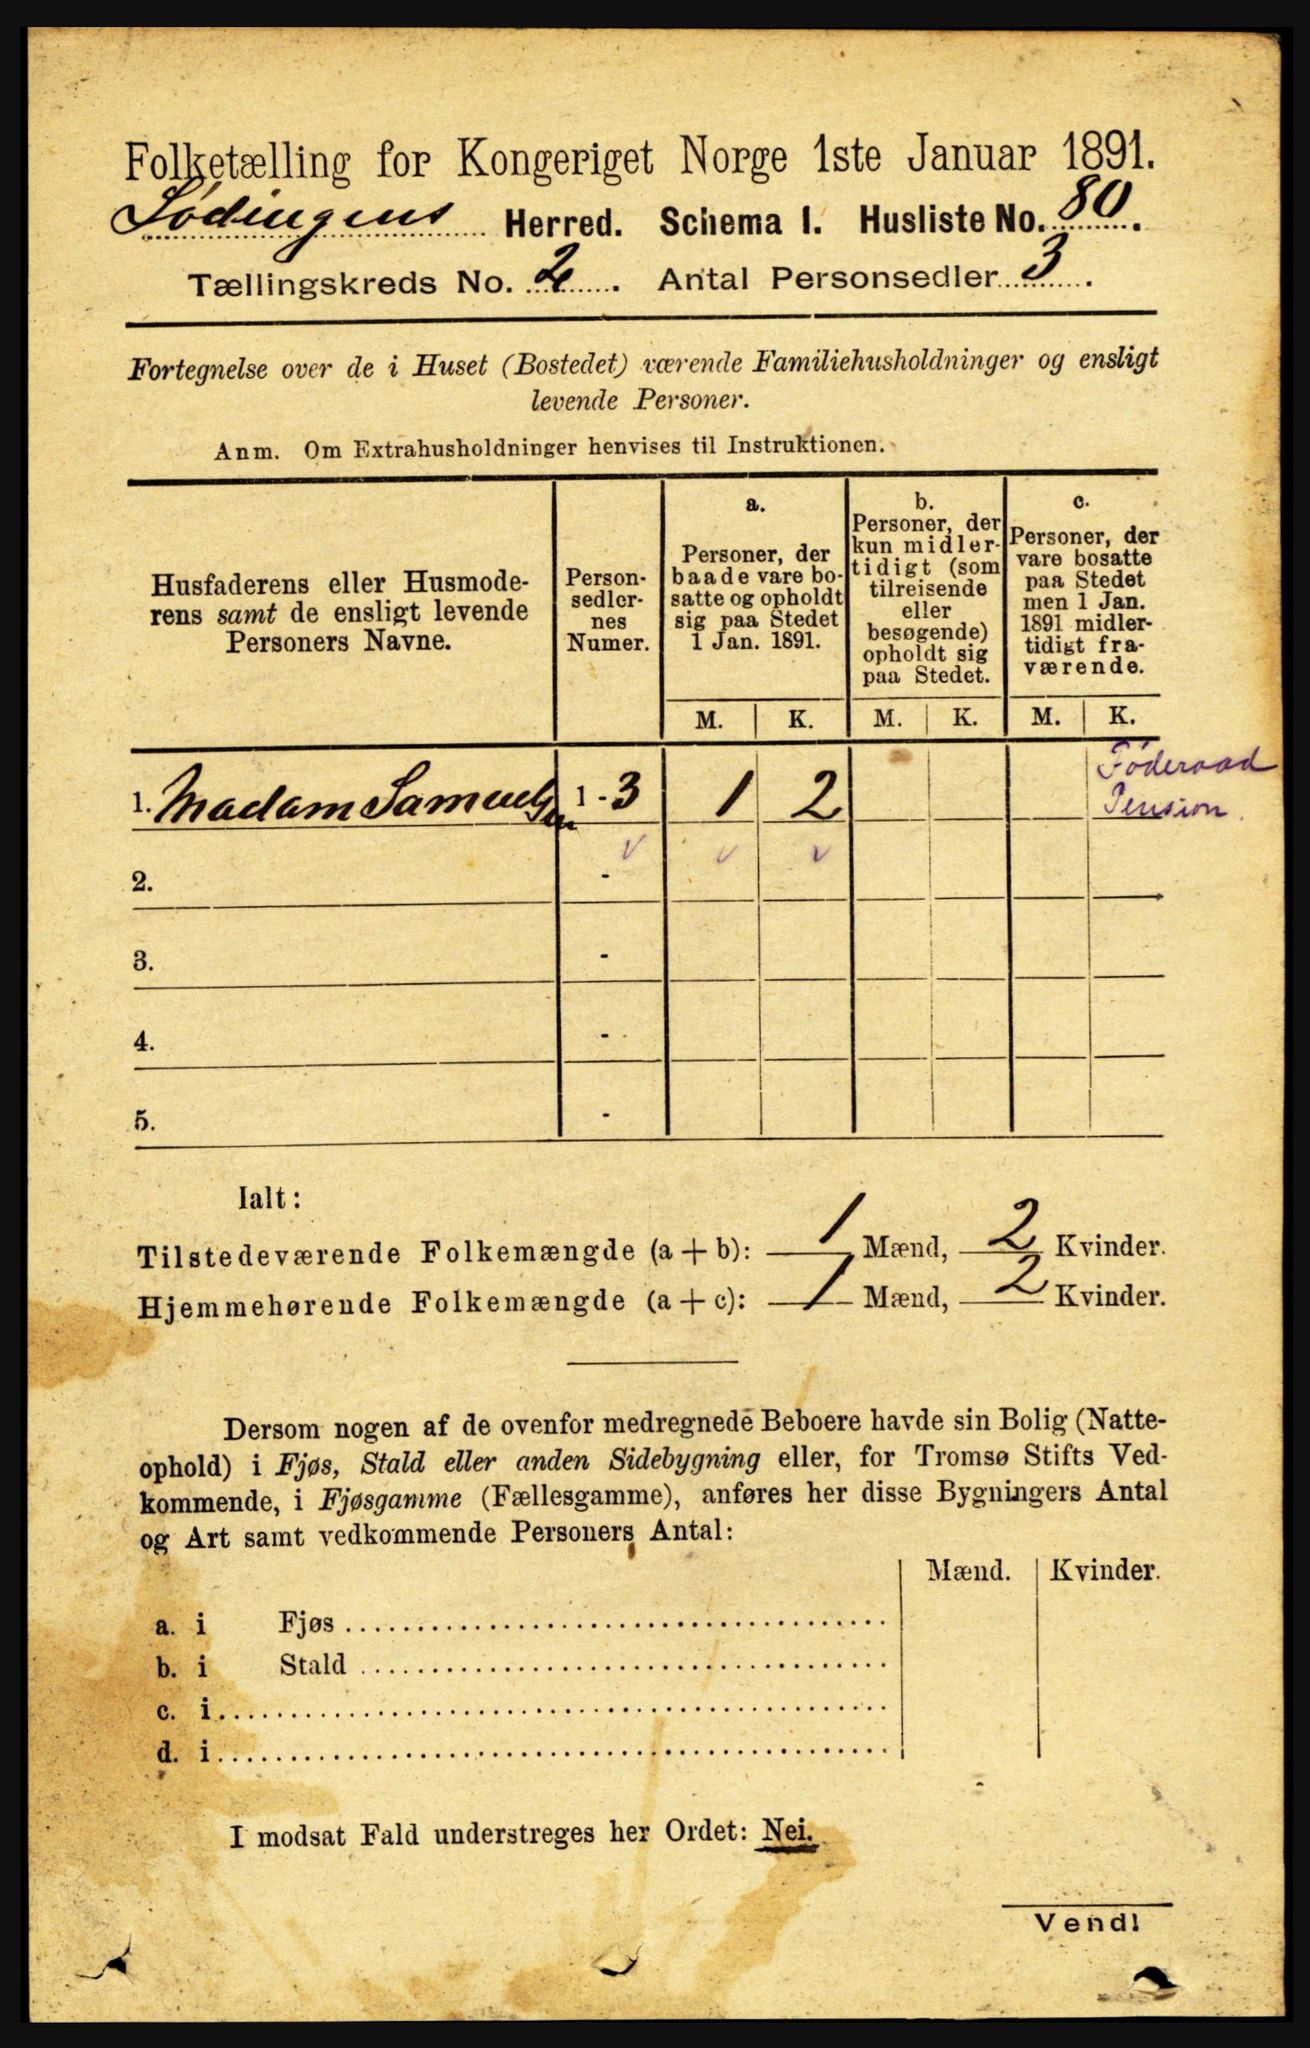 Folketælling for Kongeriget Norge 1ste Januar 1891.
Lødingens Herred. Schema I. Husliste No. 80.
Tællingskreds No. 2. Antal Personsedler 3.
Fortegnelse over de i Huset (Bostedet) værende Familiehusholdninger og ensligt
levende Personer.
Anm. Om Extrahusholdninger henvises til Instruktionen.
Husfaderens eller Husmode-
rens samt de ensligt levende
Personers Navne.
Person-
sedler-
nes
Numer.
a.
Personer, der
baade vare bo-
satte og opholdt
sig paa Stedet
1 Jan. 1891.
b.
Personer, der
kun midler-
tidigt (som
tilreisende
eller
besøgende)
opholdt sig
paa Stedet.
c.
Personer, der
vare bosatte
paa Stedet
men 1 Jan.
1891 midler-
tidigt fra-
værende.
M. K. M. K. M. K.
1. Madam Samuelsen 1 - 3 1 2
Føderaad
Pension
2. -
3. -
4. -
5. -
Ialt:
Tilstedeværende Folkemængde (a + b): 1 Mænd, 2 Kvinder.
Hjemmehørende Folkemængde (a + c): 1 Mænd, 2 Kvinder.
Dersom nogen af de ovenfor medregnede Beboere havde sin Bolig (Natte-
ophold) i Fjøs, Stald eller anden Sidebygning eller, for Tromsø Stifts Ved-
kommende, i Fjøsgamme (Fællesgamme), anføres her disse Bygningers Antal
og Art samt vedkommende Personers Antal:
Mænd. Kvinder.
a. i Fjøs
b. i Stald
c. i
d. i
I modsat Fald understreges her Ordet: Nei.
Vend!